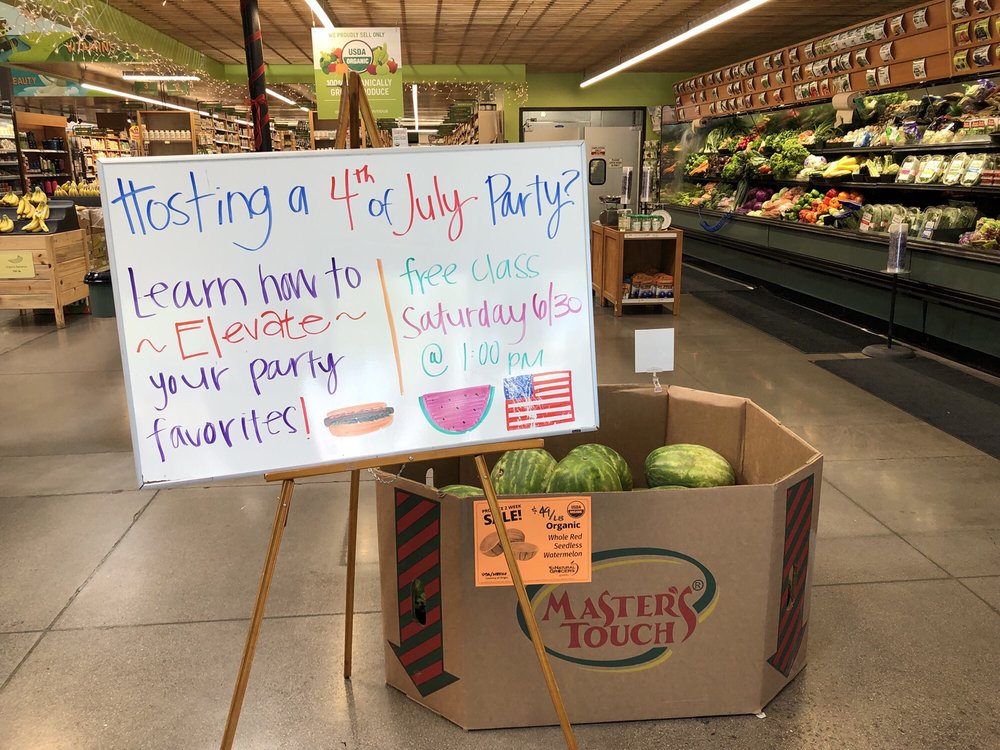 WE PROUDLY SELL ONLY
USDA
ORGANIC
VITAMINS
BEAUTY
Hosting a 4th of July Party?
Learn how to
~ Elevate ~
your party
favorites!
free class
Saturday 6/30
@ 1:00 pm
SALE!
USDA
ORGANIC
$.49/LB
Organic
Whole Red
Seedless
Watermelon
Natural
Grocers
MASTER'S
TOUCH®